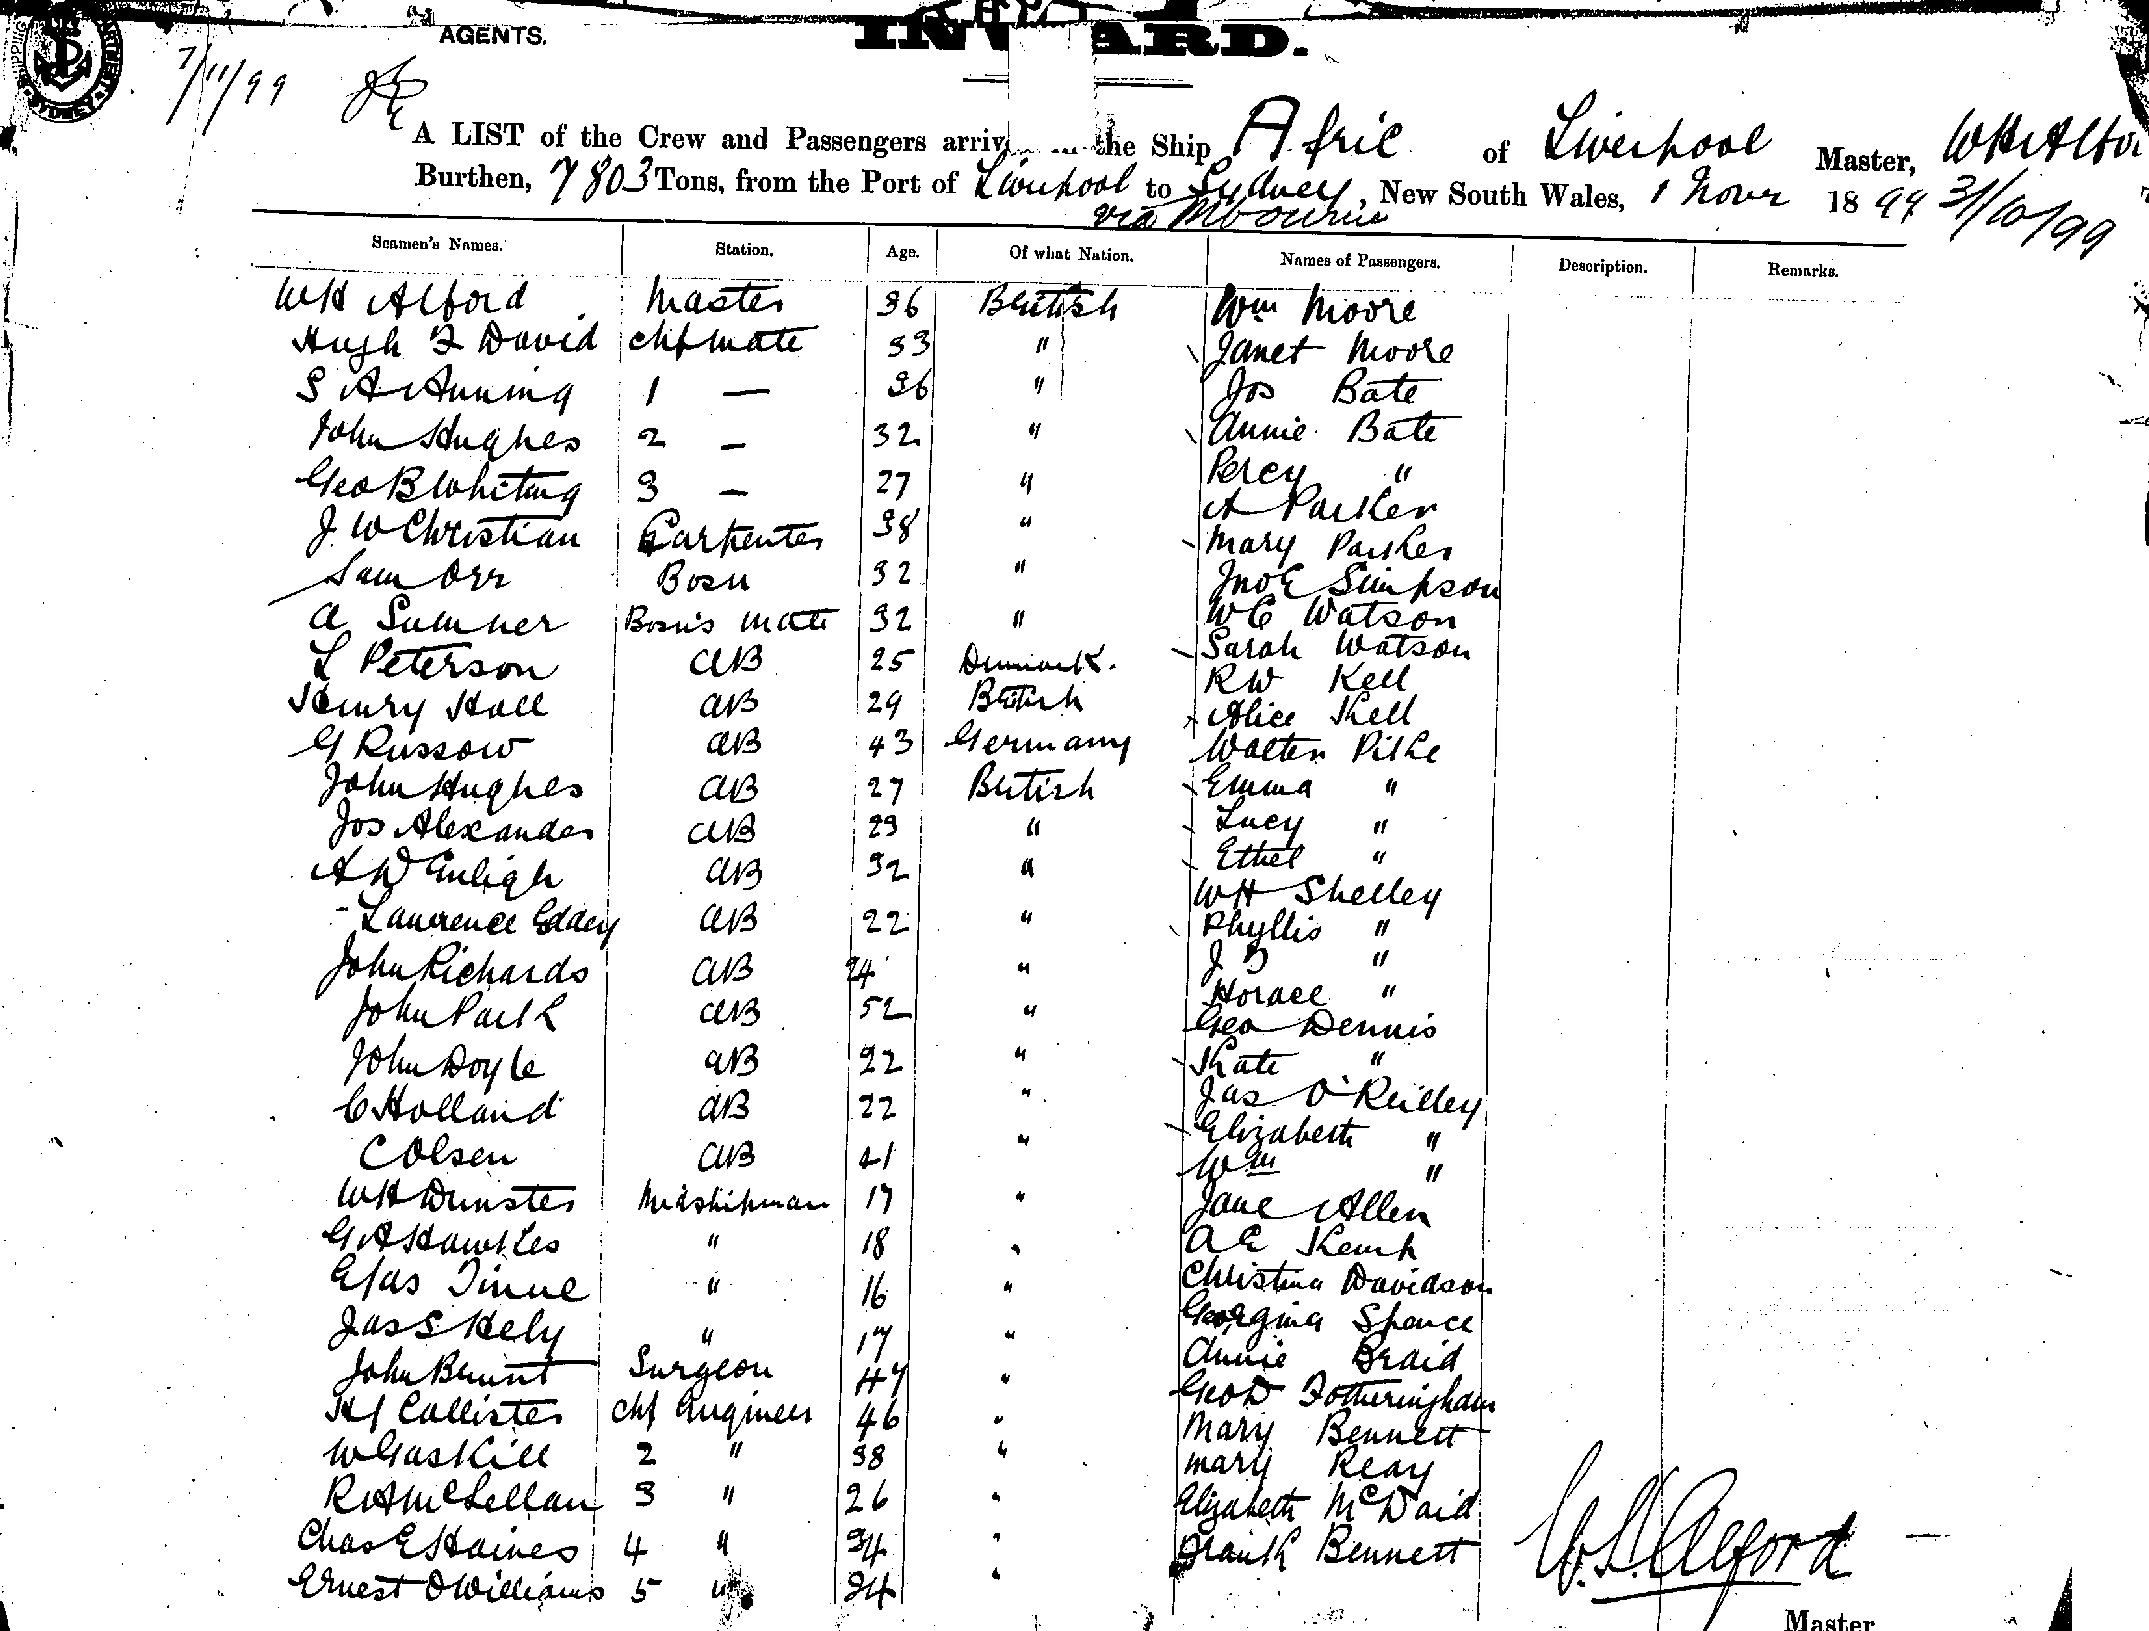 AGENTS.
INWARD.
7/11/99
A LIST of the Crew and Passengers arriv the Ship Afric of Liverpool Master, WH Alfor
Burthen, 7803 Tons, from the Port of Liverpool to Sydney, New South Wales, 1 Novr 1899 31/10/99
via Mbourne
Seamen's Names. Station. Age. Of what Nation. Names of Passengers. Description. Remarks.
WH Alford Master 36 British Wm Moore
Hugh F David chf mate 33 " Janet Moore
S A Anning 1 — 36 " Jos Bate
John Hughes 2 — 32 " Annie Bate
Geo B Whiting 3 — 27 " Percy "
J. W Christian Carpenter 38 " A Parker
Sam Orr Bosn 32 " Mary Parker
A Sumner Bosn's mate 32 " Jno E Simpson
L Peterson AB 25 Denmark. WC Watson
Henry Hall AB 29 British Sarah Watson
G Russow AB 43 Germany RW Kell
John Hughes AB 27 British Alice Kell
Jos Alexander AB 23 " Walter Pithe
A W AB 32 " Emma "
Lawrence Eddey AB 22 " Lucy "
John Richards AB 24 " Ethel "
John Park AB 52 " WH Shelley
John Doyle AB 22 " Phyllis "
C Holland AB 22 " J "
C Olsen AB 41 " Horace "
WH Dunster Midshipman 17 " Geo Dennis
G A Hawkes " 18 " Kate "
E Jas Tinne " 16 " Jas O'Reilley
Jas S Hely " 17 " Elizabeth "
John Surgeon 47 " Wm "
HJ Callister chf Engineer 46 " Jane Allen
W Gaskill 2 " 38 " A E Kemp
R A McLellan 3 " 26 " Christina Davidson
Chas E Haines 4 " 34 " Georgina Spence
Ernest O Williams 5 " 24 " Annie Braid
Geo D Fotheringham
Mary Bennett
Mary Reay
Elizabeth McDaid
Frank Bennett
W. H. Alford
Master